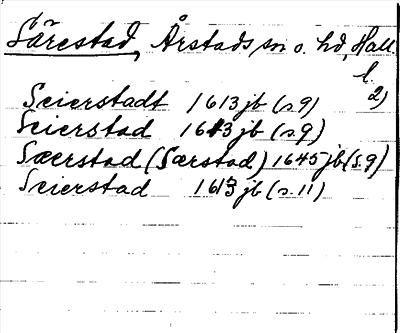 Särestad, Årstads sn o. hd, Hall.
l.
2)
Seierstadt 1613 jb (s.9)
Seierstad 1613 jb (s.9)
Særstad (Særstad) 1645 jb (s.9)
Seierstad 1613 jb (s.11)